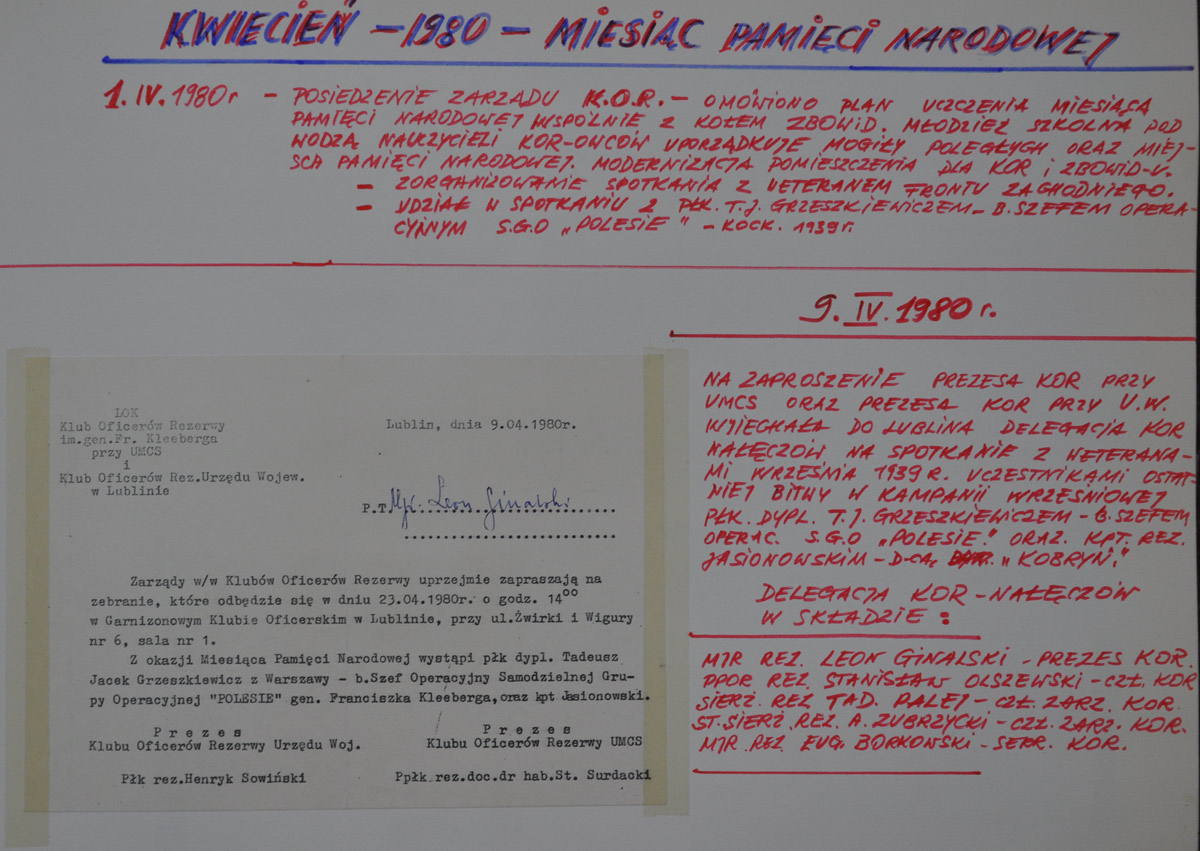 KWIECIEŃ – 1980 – MIESIĄC PAMIĘCI NARODOWEJ
1. IV. 1980 r – POSIEDZENIE ZARZĄDU K.O.R. – OMÓWIONO PLAN UCZCZENIA MIESIĄCA
PAMIĘCI NARODOWEJ WSPÓLNIE Z KOŁEM ZBOWID. MŁODZIEŻ SZKOLNA POD
WODZĄ NAUCZYCIELI KOR-OWCÓW UPORZĄDKUJE MOGIŁY POLEGŁYCH ORAZ MIEJ-
SCA PAMIĘCI NARODOWEJ. MODERNIZACJA POMIESZCZENIA DLA KOR i ZBOWID-U.
– ZORGANIZOWANIE SPOTKANIA Z WETERANEM FRONTU ZACHODNIEGO.
– UDZIAŁ W SPOTKANIU Z PŁK. T.J. GRZESZKIEWICZEM – B. SZEFEM OPERA-
CYJNYM S.G.O „POLESIE" – KOCK. 1939 r.
9. IV. 1980 r.
LOK
Klub Oficerów Rezerwy
im.gen.Fr. Kleeberga
przy UMCS
i
Klub Oficerów Rez.Urzędu Wojew.
w Lublinie
Lublin, dnia 9.04.1980r.
P.T. Mjr. Leon Ginalski
Zarządy w/w Klubów Oficerów Rezerwy uprzejmie zapraszają na
zebranie, które odbędzie się w dniu 23.04.1980r. o godz. 14⁰⁰
w Garnizonowym Klubie Oficerskim w Lublinie, przy ul.Żwirki i Wigury
nr 6, sala nr 1.
Z okazji Miesiąca Pamięci Narodowej wystąpi płk dypl. Tadeusz
Jacek Grzeszkiewicz z Warszawy – b.Szef Operacyjny Samodzielnej Gru-
py Operacyjnej "POLESIE" gen. Franciszka Kleeberga, oraz kpt Jasionowski.
P r e z e s
Klubu Oficerów Rezerwy Urzędu Woj.
Płk rez.Henryk Sowiński
P r e z e s
Klubu Oficerów Rezerwy UMCS
Ppłk.rez.doc.dr hab.St. Surdacki
NA ZAPROSZENIE PREZESA KOR PRZY
UMCS ORAZ PREZESA KOR PRZY U.W.
WYJECHAŁA DO LUBLINA DELEGACJA KOR
NAŁĘCZÓW NA SPOTKANIE Z WETERANA-
MI WRZEŚNIA 1939 R. UCZESTNIKAMI OSTAT-
NIEJ BITWY W KAMPANII WRZEŚNIOWEJ
PŁK. DYPL. T.J. GRZESZKIEWICZEM – B. SZEFEM
OPERAC. S.G.O „POLESIE." ORAZ. KPT. REZ.
JASIONOWSKIM – D-CĄ, „KOBRYŃ."
DELEGACJA KOR – NAŁĘCZÓW
W SKŁADZIE :
MJR REZ. LEON GINALSKI – PREZES KOR.
PPOR REZ. STANISŁAW OLSZEWSKI – CZŁ. KOR
SIERŻ. REZ TAD. PALEJ – CZŁ. ZARZ. KOR.
ST. SIERŻ. REZ. A. ZUBRZYCKI – CZŁ. ZARZ. KOR.
MJR REZ EUG. BORKOWSKI – SEKR. KOR.